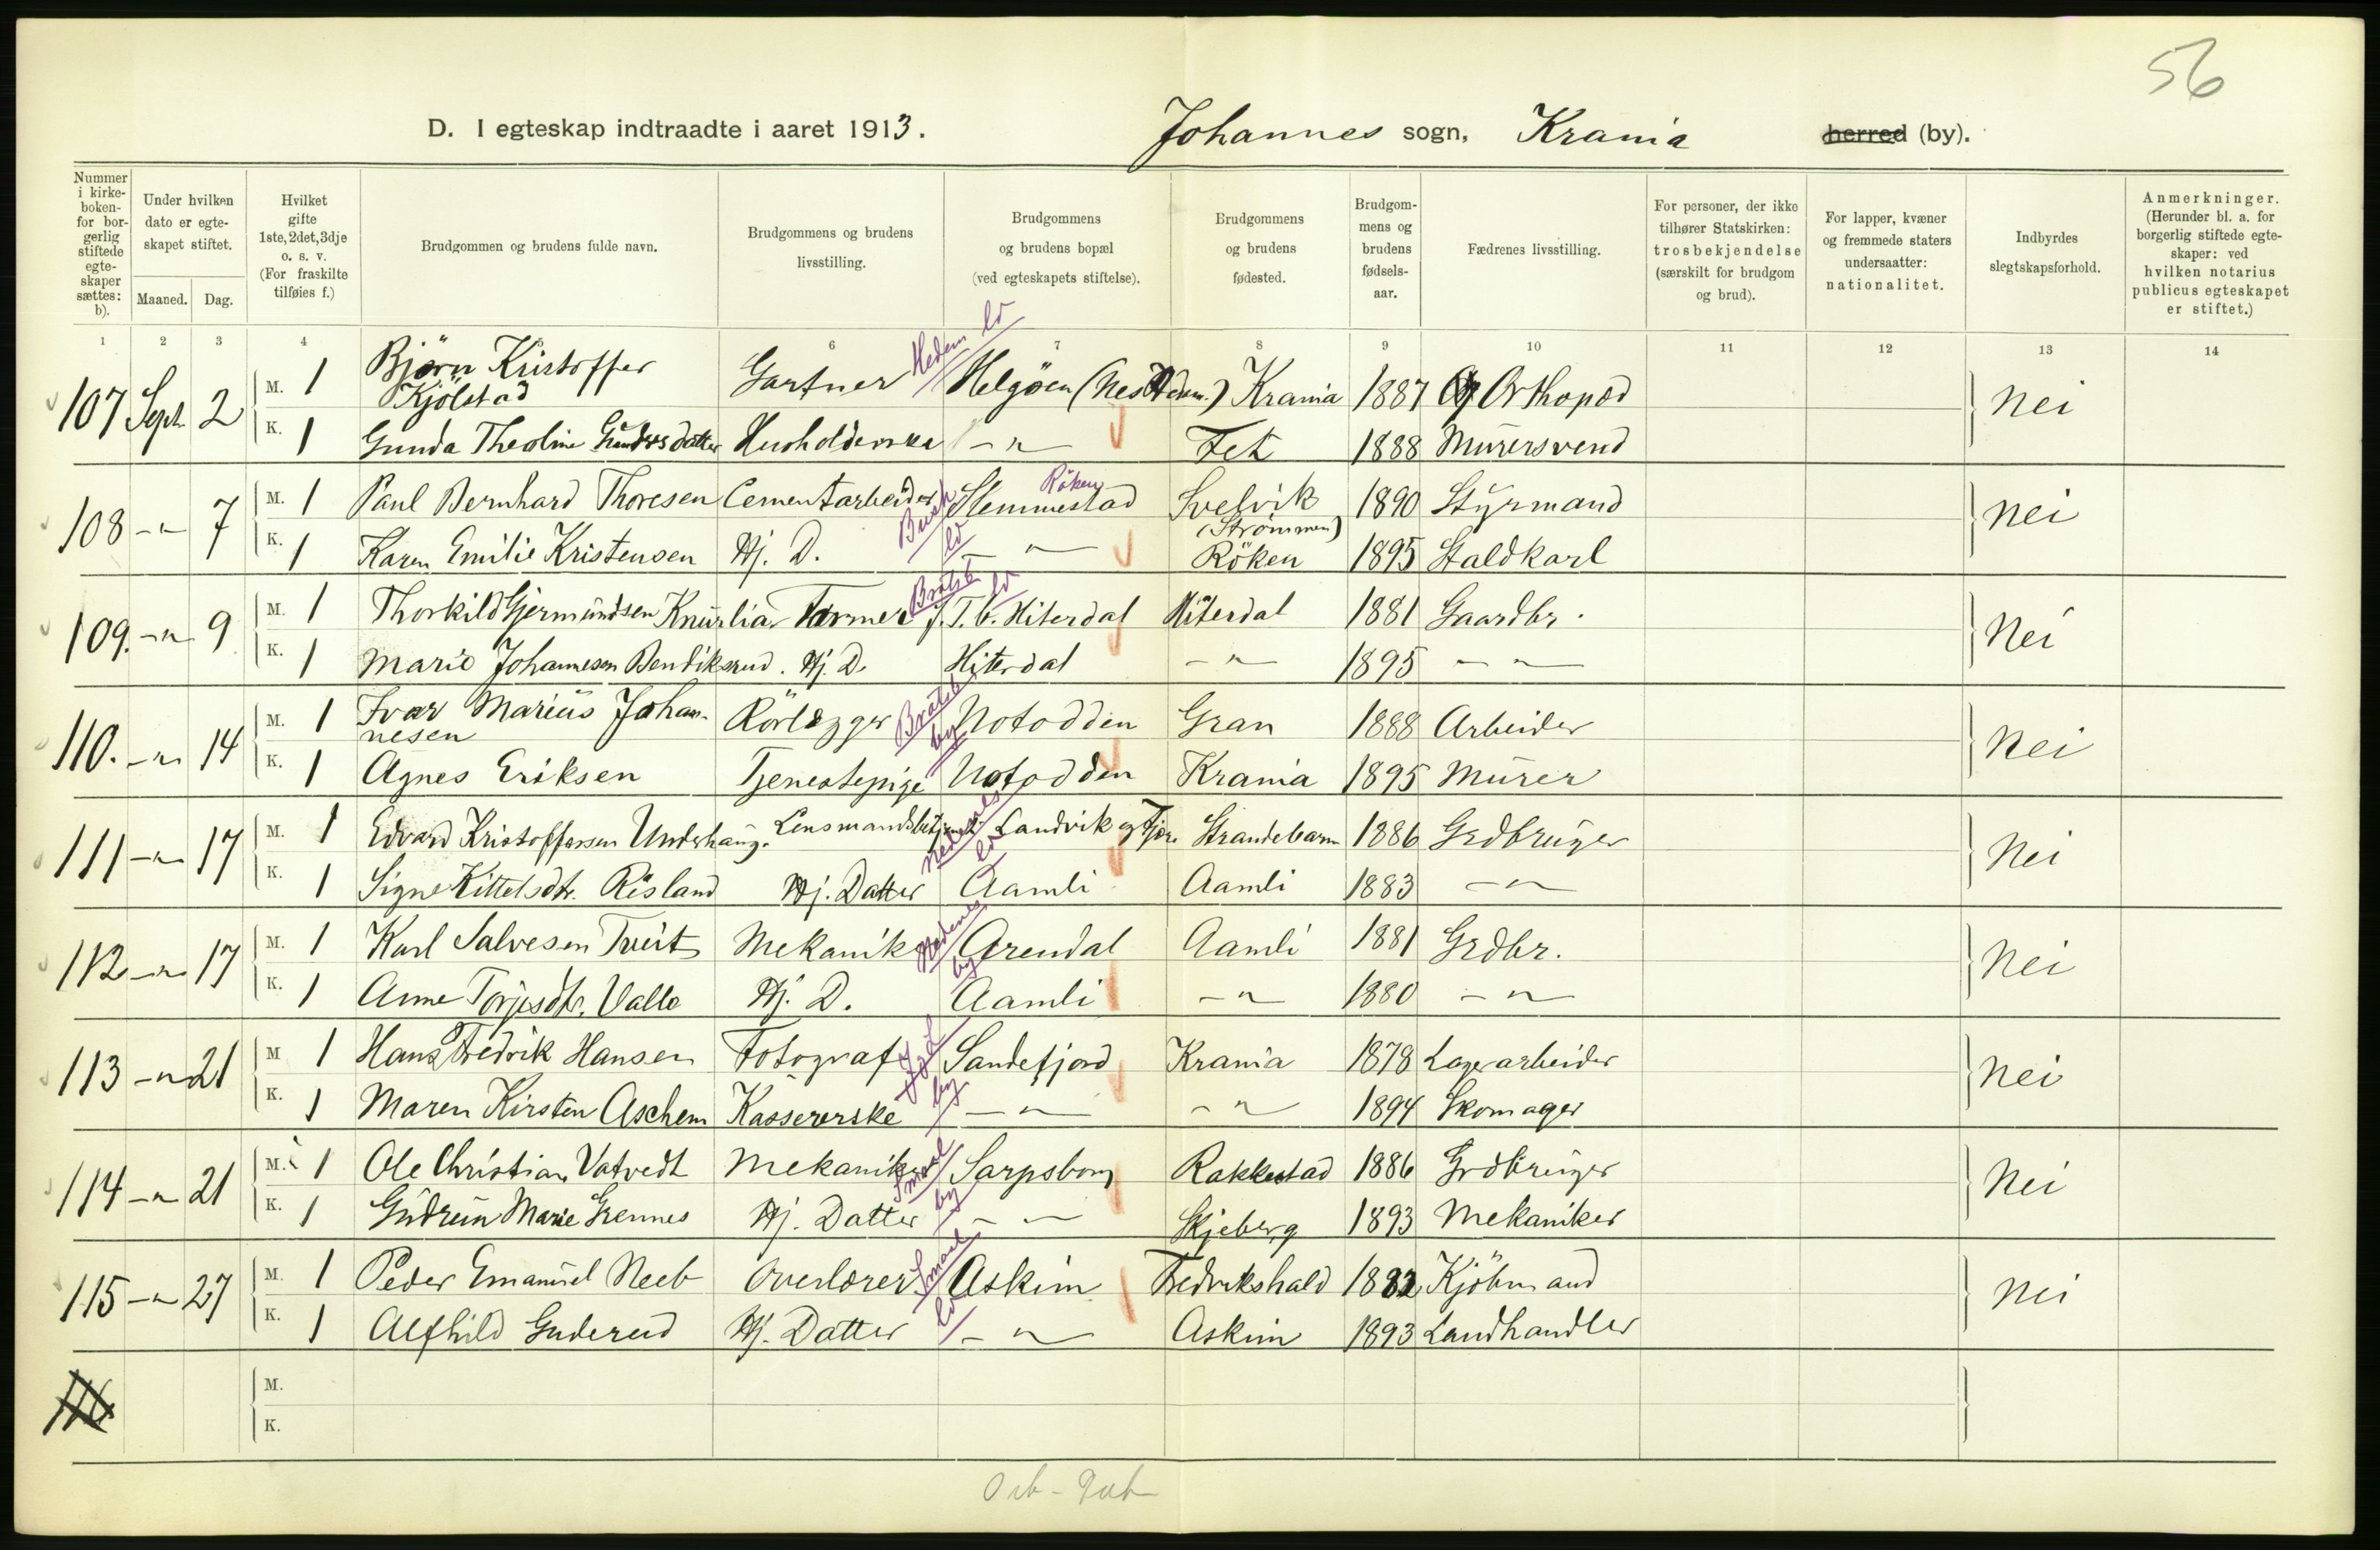 56
D. I egteskap indtraadte i aaret 1913. Johannes sogn, Krania herred (by).
Nummer i kirke-boken- for bor-gerlig stiftede egte-skaper sættes: b).
Under hvilken dato er egte-skapet stiftet.
Maaned. Dag.
Hvilket gifte 1ste, 2det, 3dje o. s. v. (For fraskilte tilføies f.)
Brudgommen og brudens fulde navn.
Brudgommens og brudens livsstilling.
Brudgommens og brudens bopæl (ved egteskapets stiftelse).
Brudgommens og brudens fødested.
Brudgom-mens og brudens fødsels-aar.
Fædrenes livsstilling.
For personer, der ikke tilhører Statskirken: trosbekjendelse (særskilt for brudgom og brud).
For lapper, kvæner og fremmede staters undersaatter: nationalitet.
Indbyrdes slegtskapsforhold.
Anmerkninger. (Herunder bl. a. for borgerlig stiftede egte-skaper: ved hvilken notarius publicus egteskapet er stiftet.)
1 2 3 4 6 7 8 9 10 11 12 13 14
Hedem ld
107 Sept. 2 M. 1 Bjørn Kristoffer Kjölstad Gartner Helgöen (Nes Hedem.) Krania 1887 Orthopæd Nei
K. 1 Gunda Theoline Gundersdatter Husholderske - " - Fet 1888 Murersvend
Röken
108 - " - 7 M. 1 Paul Bernhard Thoresen Cementarbeider Slemmestad Svelvik (Strömmen) 1890 Styrmand Nei
Busk ld
K. 1 Karen Emilie Kristensen Hj. D. - " - Röken 1895 Staldkarl
Bratsb ld
109. - " - 9 M. 1 Thorkild Gjermundsen Knurlia Farmer f. T. b. Hiterdal Hiterdal 1881 Gaardbr. Nei
K. 1 Marie Johannesen Bendiksrud. Hj. D. Hiterdal - " - 1895 - " -
Bratsb by
110. - " - 14 M. 1 Ivar Marius Johannesen Rörlægger Notodden Gran 1888 Arbeider Nei
K. 1 Agnes Eriksen Tjenestepige Notodden Krania 1895 Murer
Nedenes ld
111 - " - 17 M. 1 Edvard Kristoffersen Underhaug. Lensmandsbetjent Landvik og Fjære Strandebarm 1886 Grdbruger Nei
K. 1 Signe Kittelsdtr. Risland Hj. Datter Aamli Aamli 1883 - " -
Nedenes by
112 - " - 17 M. 1 Karl Salvesen Tveit Mekaniker Arendal Aamli 1881 Grdbr. Nei
K. 1 Anne Torjesdtr. Valle Hj. D. Aamli - " - 1880 - " -
J & L by
113 - " - 21 M 1 Hans Fredrik Hansen Fotograf Sandefjord Krania 1878 Lagerarbeider Nei
K. 1 Maren Kirsten Aschem Kassererske - " - - " - 1894 Skomager
Smaal by
114 - " - 21 M. 1 Ole Christian Vatvedt Mekaniker Sarpsborg Rakkestad 1886 Grdbruger Nei
K. 1 Gudrun Marie Grennes Hj. Datter - " - Skjeberg 1893 Mekaniker
Smaal ld
115 - " - 27 M. 1 Peder Emanuel Neeb Overlærer Askim Fredrikshald 1882 Kjöbmand Nei
K. 1 Alfhild Guderud Hj. Datter - " - Askim 1893 Landhandler
116 M.
K.